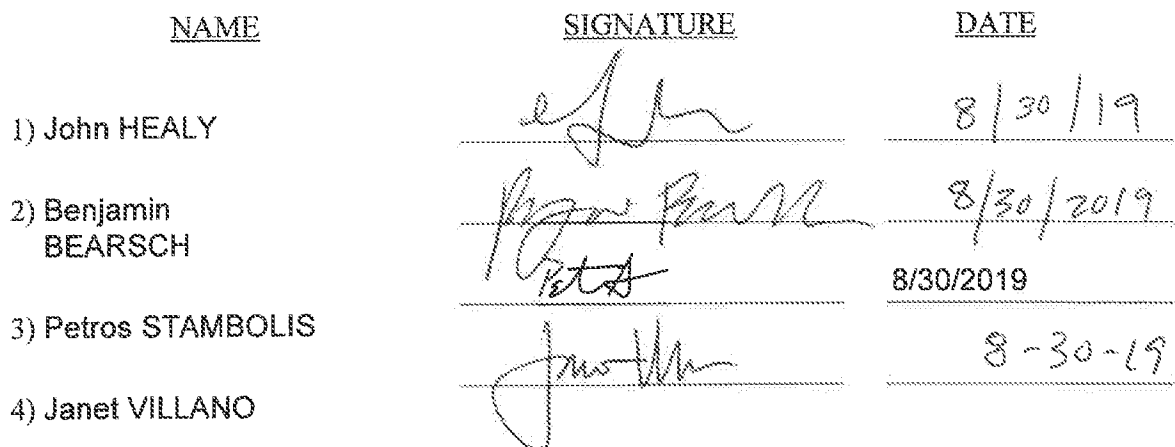 NAME SIGNATURE DATE
1) John HEALY 8/30/19
2) Benjamin 8/30/2019
BEARSCH
8/30/2019
3) Petros STAMBOLIS
8-30-19
4) Janet VILLANO